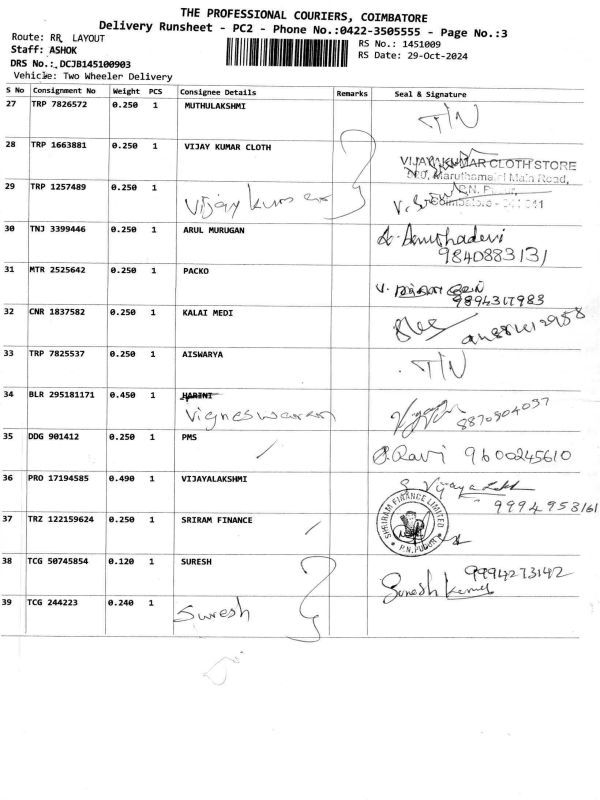 THE PROFESSIONAL COURIERS, COIMBATORE
Delivery Runsheet - PC2 - Phone No.:0422-3505555 - Page No.:3
Route: RR LAYOUT
RS No.: 1451009
Staff: ASHOK
RS Date: 29-Oct-2024
DRS No.: DCJB145100903
Vehicle: Two Wheeler Delivery
S No Consignment No Weight PCS Consignee Details Remarks Seal & Signature
27 TRP 7826572 0.250 1 MUTHULAKSHMI T/N
28 TRP 1663881 0.250 1 VIJAY KUMAR CLOTH
VIJAY KUMAR CLOTH STORE
Maruthamalai Main Road,
P.N. Pudur,
Coimbatore - 641 041
29 TRP 1257489 0.250 1 Vijay Kumar
30 TNJ 3399446 0.250 1 ARUL MURUGAN
9840883131
31 MTR 2525642 0.250 1 PACKO
9894317983
32 CNR 1837582 0.250 1 KALAI MEDI
33 TRP 7825537 0.250 1 AISWARYA T/N
34 BLR 295181171 0.450 1 HARINI
Vigneswaran
8870904037
35 DDG 901412 0.250 1 PMS
P. Ravi 9600245610
36 PRO 17194585 0.490 1 VIJAYALAKSHMI
9994953161
37 TRZ 122159624 0.250 1 SRIRAM FINANCE
SHRIRAM FINANCE LIMITED
P.N.PUDUR
38 TCG 50745854 0.120 1 SURESH
9994273142
Suresh Kumar
39 TCG 244223 0.240 1 Suresh